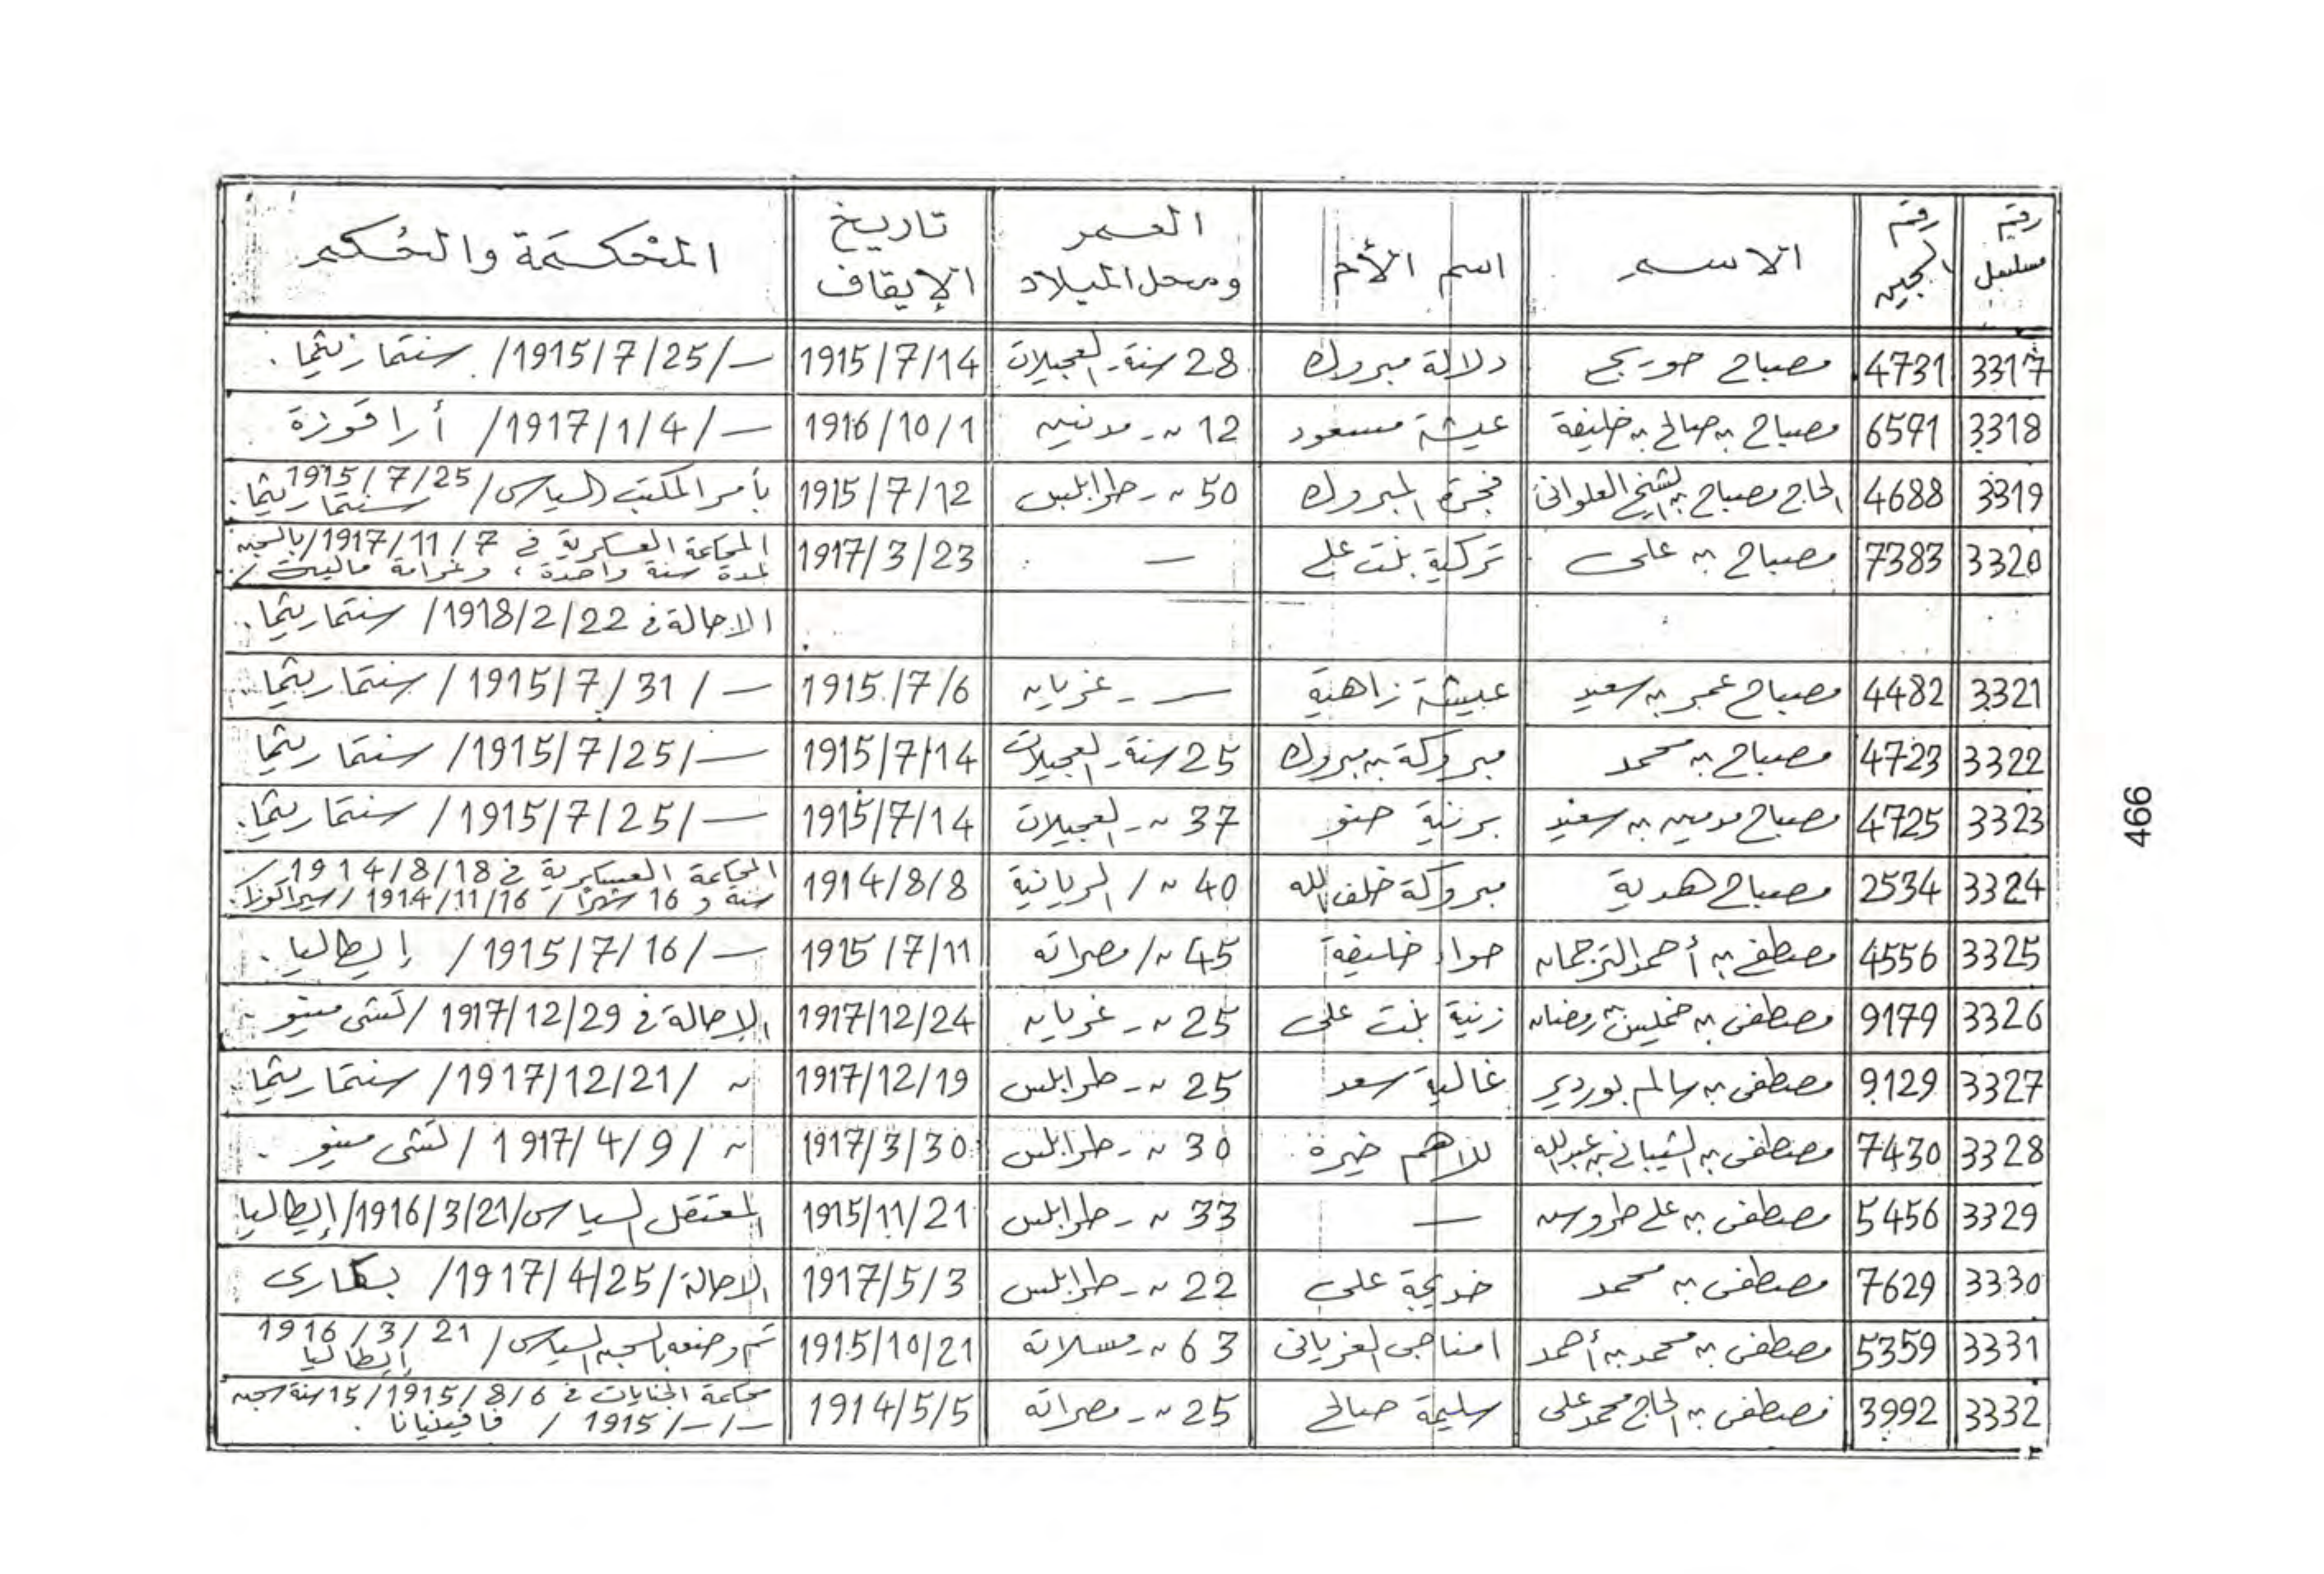 رقم مسلسل | رقم السجين | الاسم | اسم الأم | العمر ومحل الميلاد | تاريخ الإيقاف | المحكمة والحكم
3317 | 4731 | مصباح حوريج | دلالة مبروك | 28 سنة - العجيلات | 1915/7/14 | — / 1915/7/25 / سنتمارتيما .
3318 | 6571 | مصباح بن صالح بن خليفة | عيشة مسعود | 12 ~ - مدنين | 1916/10/1 | — / 1917/1/4 / أراقوزة
3319 | 4688 | الحاج مصباح بن الشيخ العلواني | فجرة المبروك | 50 ~ - طرابلس | 1915/7/12 | بأمر المكتب السياسى / 1915/7/25 سنتماريتما .
3320 | 7383 | مصباح بن على | تركية بنت على | — | 1917/3/23 | المحاكمة العسكرية في 1917/11/7 / بالسجن لمدة سنة واحدة ، وغرامة مالية /
الاحالة في 1918/2/22 / سنتماريتما .
3321 | 4482 | مصباح عمر بن سعيد | عيشة زاهية | — - غريان | 1915/7/6 | — / 1915/7/31 / سنتماريتما .
3322 | 4723 | مصباح بن محمد | مبروكة بن مبروك | 25 سنة - العجيلات | 1915/7/14 | — / 1915/7/25 / سنتماريتما
3323 | 4725 | مصباح مومين بن سعيد | برنية | 37 ~ - العجيلات | 1915/7/14 | — / 1915/7/25 / سنتماريتما .
3324 | 2534 | مصباح هدية | مبروكة خلف الله | 40 ~ / الريانية | 1914/8/8 | المحاكمة العسكرية في 1914/8/18 / سنة و 16 شهرا / 1914/11/16 / سيراكوزا .
3325 | 4556 | مصطفى بن أحمد الترجمان | حواء خليفة | 45 ~ / مصراته | 1915/7/11 | — / 1915/7/16 / إيطاليا .
3326 | 9179 | مصطفى بن خميس بن رمضان | زنية بنت على | 25 ~ - غريان | 1917/12/24 | الإحالة في 1917/12/29 / تشى مينو .
3327 | 9129 | مصطفى بن سالم بوردير | غالية سعد | 25 ~ - طرابلس | 1917/12/19 | ~ / 1917/12/21 / سنتماريتما .
3328 | 7430 | مصطفى بن الشيباني بن عبدالله | للاهم خيرة | 30 ~ - طرابلس | 1917/3/30 | ~ / 1917/4/9 / تشى مينو .
3329 | 5456 | مصطفى بن على طروس | — | 33 ~ - طرابلس | 1915/11/21 | المعتقل السياسى / 1916/3/21 / إيطاليا
3330 | 7629 | مصطفى بن محمد | خديجة على | 22 ~ - طرابلس | 1917/5/3 | الاحالة / 1917/4/25 / بكارى
3331 | 5359 | مصطفى بن محمد بن أحمد | امناجى الغريانى | 63 ~ - مسلاته | 1915/10/21 | تم وضعه بالسجن السياسى / 1916/3/21 إيطاليا
3332 | 3992 | مصطفى بن الحاج محمد على | سليمة صالح | 25 ~ - مصراته | 1914/5/5 | محكمة الجنايات في 1915/8/6 / 15 سنة سجن — / — / 1915 / فافينيانا .
466